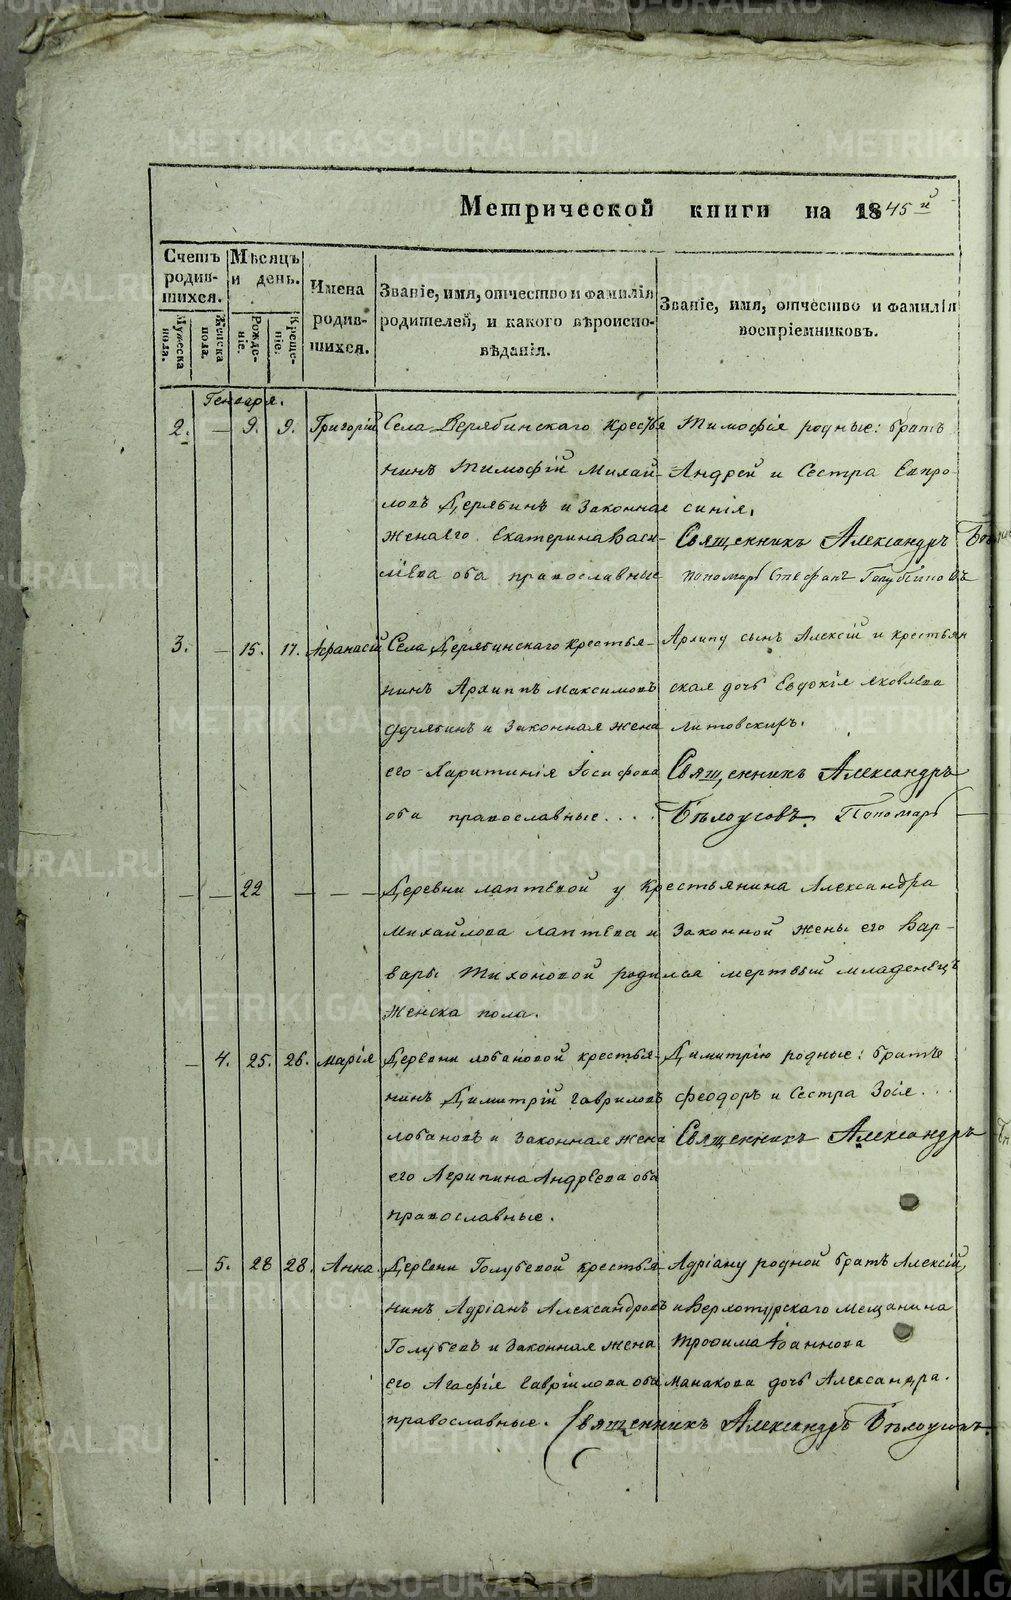 Метрической книги на 1845й
Счетъ родив-шихся.
Мужеска пола.
Женска пола.
Мѣсяцъ и день.
Рожде-ніе.
Креще-ніе.
Имена родив-шихся.
Званіе, имя, отчество и фамилія
родителей, и какого вѣроиспо-
вѣданія.
Званіе, имя, отчество и фамилія
воспріемниковъ.
Генваря.
2. — 9. 9. Григорій
Села Дерябинскаго Крестья
нинъ Тимофій Михай-
ловъ Дерябинъ и Законная
жена его Екатерина Васи-
ліева оба православные
Тимофія родные: братъ
Андрей и Сестра Евпро-
синія.
Священникъ Александръ
пономарь Стефанъ
3. — 15. 17. Афанасій
Села Дерябинскаго Крестья-
нинъ Архиппъ Максимовъ
Дерябинъ и Законная жена
его Харитинія Іосифова
оба православные....
Архипу сынъ Алексій и крестьян
ская дочь Евдокія Яковлева
Литовскихъ.
Священникъ Александръ
Бѣлоусовъ. Пономарь
— — 22 — — —
Деревни лаптевой у Крестьянина Александра
Михайлова лаптева и Законной жены его Вар-
вары Тихоновой родился мертвый младенецъ
Женска пола.
— 4. 25. 26. Марія
Деревни лобановой крестья-
нинъ Димитрій гавриловъ
лобановъ и Законная жена
его Агрипина Андреева оба
православные.
Димитрію родные: братъ
феодоръ и Сестра Зоія...
Священникъ Александръ
— 5. 28 28. Анна.
Деревни Голубевой крестья-
нинъ Адріанъ Александровъ
Голубевъ и Законная жена
его Агафія гавріилова оба
православные.
Адріану родной братъ Алексій,
и Верхотурскаго мещанина
Трофима Іоаннова
Манакова дочь Александра.
Священникъ Александръ Бѣлоусовъ.
METRIKI.GASO-URAL.RU